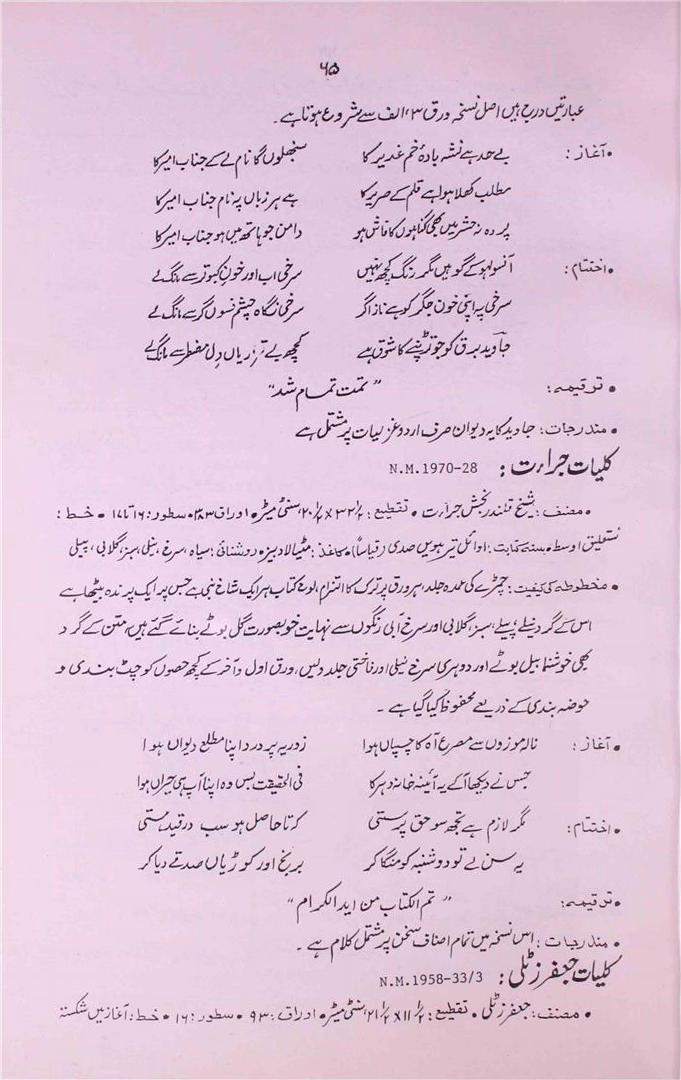 ۶۵
عبارتیں درج ہیں اصل نسخہ ورق ۳، الف سے شروع ہوتا ہے۔
• آغاز : بے حد ہے نشہ بادۂ خم غدیر کا سنبھلوں گا نام لے کے جناب امیر کا
مطلب کھلا ہوا ہے قلم کے صریر کا ہے ہر زباں پہ نام جناب امیر کا
پردہ نہ حشر میں بھی گناہوں کا فاش ہو دامن جو ہاتھ میں ہو جناب امیر کا
• اختتام : آنسو لہو کے گو ہیں مگر رنگ کچھ نہیں سرخی اب اور خون کبوتر سے مانگ لے
سرخی پہ اپنی خون جگر کو ہے ناز اگر سرخی نگاہ چشم فسوں گر سے مانگ لے
جاوید برق کو جو تڑپنے کا شوق ہے کچھ بے قراریاں دل مضطر سے مانگ لے
• ترقیمہ : ”تمت تمام شد“
• مندرجات : جاوید کا یہ دیوان صرف اردو غزلیات پر مشتمل ہے
کلیات جرأت : N.M.1970-28
• مصنف : شیخ قلندر بخش جرأت • تقطیع : ۳۲ ۱/۲ × ۲۰ ۱/۲ سنٹی میٹر • اوراق ۳۸۰ • سطور : ۱۶ تا ۱۷ • خط :
نستعلیق اوسط • سنہ کتابت : اوائل تیرہویں صدی (قیاساً) • کاغذ : مٹیالا دبیز • روشنائی : سیاہ، سرخ، نیلی، سبز، گلابی، پیلی
• مخطوطہ کی کیفیت : چمڑے کی عمدہ جلد، ہر ورق پر ترک کا التزام، لوح کتاب پر ایک شاخ بنی ہے جس پر ایک پرندہ بیٹھا ہے
اس کے گرد نیلے، پیلے، سبز، گلابی اور سرخ آبی رنگوں سے نہایت خوبصورت گل بوٹے بنائے گئے ہیں، متن کے گرد
بھی خوشنما بیل بوٹے اور دوہری سرخ نیلی اور فاختی جلد دلیں، ورق اول و آخر کے کچھ حصوں کو چٹ بندی و
حوضہ بندی کے ذریعے محفوظ کیا گیا ہے ۔
• آغاز : نالہ موزوں سے مصرع آہ کا چسپاں ہوا زور یہ پر درد اپنا مطلع دیواں ہوا
جس نے دیکھا آ کے یہ آئینہ خانہ دہر کا فی الحقیقت بس وہ اپنا آپ ہی حیراں ہوا
• اختتام : مگر لازم ہے تجھ سو حق پرستی کرتا حاصل ہو سب در قید ہستی
یہ سن لے تو دو شنبہ کو منگا کر برنج اور کوڑیاں صدقے دیا کر
• ترقیمہ : ”تم الکتاب من اید الکرام“
• مندرجات : اس نسخہ میں تمام اصناف سخن پر مشتمل کلام ہے ۔
کلیات جعفر زٹلی : N.M.1958-33/3
• مصنف : جعفر زٹلی • تقطیع : ۱۱ ۱/۲ × ۲۱ ۱/۲ سنٹی میٹر • اوراق : ۹۳ • سطور : ۱۶ • خط : آغاز میں شکستہ